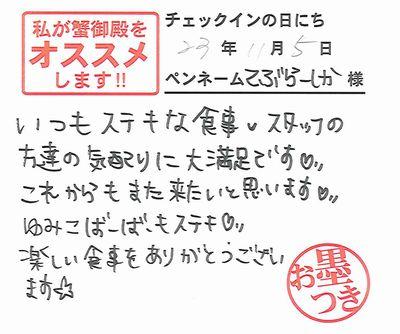 私が蟹御殿を
オススメ
します!!
チェックインの日にち
23年11月5日
ペンネームてぶらーしか様
いつもステキな食事、スタッフの
方達の気配りに大満足です♡〃
これからもまた来たいと思います♡〃
ゆみこばーばーもステキ♡〃
楽しい食事をありがとうござい
ます☆
お墨
つき